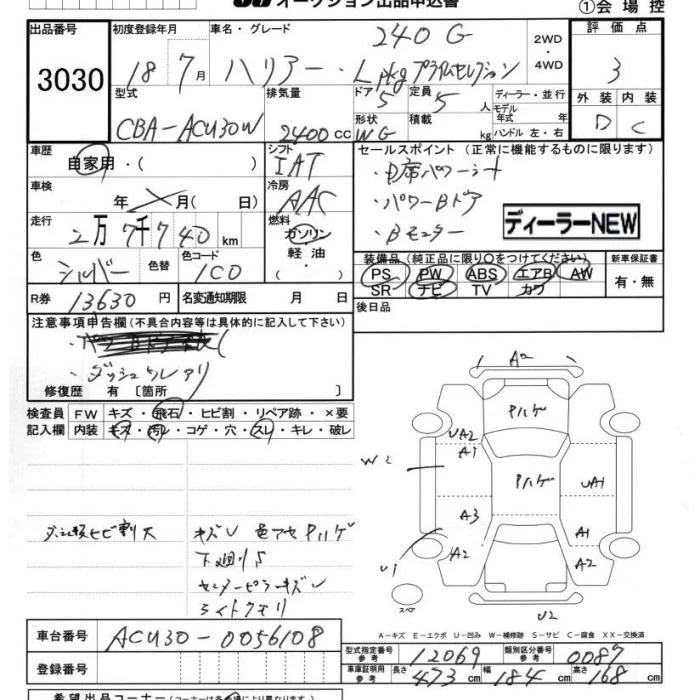 オークション出品申込書
①会場控
出品番号 初度登録年月 車名・グレード 240G 2WD・4WD 評価点
3030 18 7月 ハリアー・L pkg プライムセレクション 3
型式 排気量 ドア 5 定員 5人 ディーラー・並行 モデル年式 年式 外装 内装
CBA-ACU30W 2400cc 形状 WG 積載 kg ハンドル 左・右 D C
車歴 自家用・( ) シフト IAT セールスポイント (正常に機能するものに限ります)
・D席パワーシート
車検 年 月( 日) 冷房 AAC ・パワーBドア
走行 2万7千740km 燃料 ガソリン ・Bモニター ディーラーNEW
軽油
色 シルバー 色替 色コード 1C0 ( ) 装備品 (純正品に限り○をつけてください) 新車保証書
PS PW ABS エアB AW 有・無
SR ナビ TV カワ
R券 13630円 名変通知期限 月 日 後日品
注意事項申告欄 (不具合内容等は具体的に記入して下さい)
・ダッシュワレアリ
修復歴 有 〔箇所 〕
検査員 FW キズ・飛石・ヒビ割・リペア跡・×要
記入欄 内装 キズ・汚レ・コゲ・穴・スレ・キレ・破レ
A2
Pハゲ
UA2
A1
W2
Pハゲ
UA1
A3
A1
U1
A2
A2
スペア
U2
ヒビ割大
キズU 色アセ Pハゲ
下廻りS
センターピラーキズU
ライトクモリ
A-キズ E-エクボ U-凹み W-補修跡 S-サビ C-腐食 XX-交換済
車台番号 ACU30-0056108
型式指定番号 参考 12069 類別区分番号 参考 0087
登録番号 車庫証明用 参考 長さ 473cm 幅 184cm 高さ 168cm
希望出品コーナー